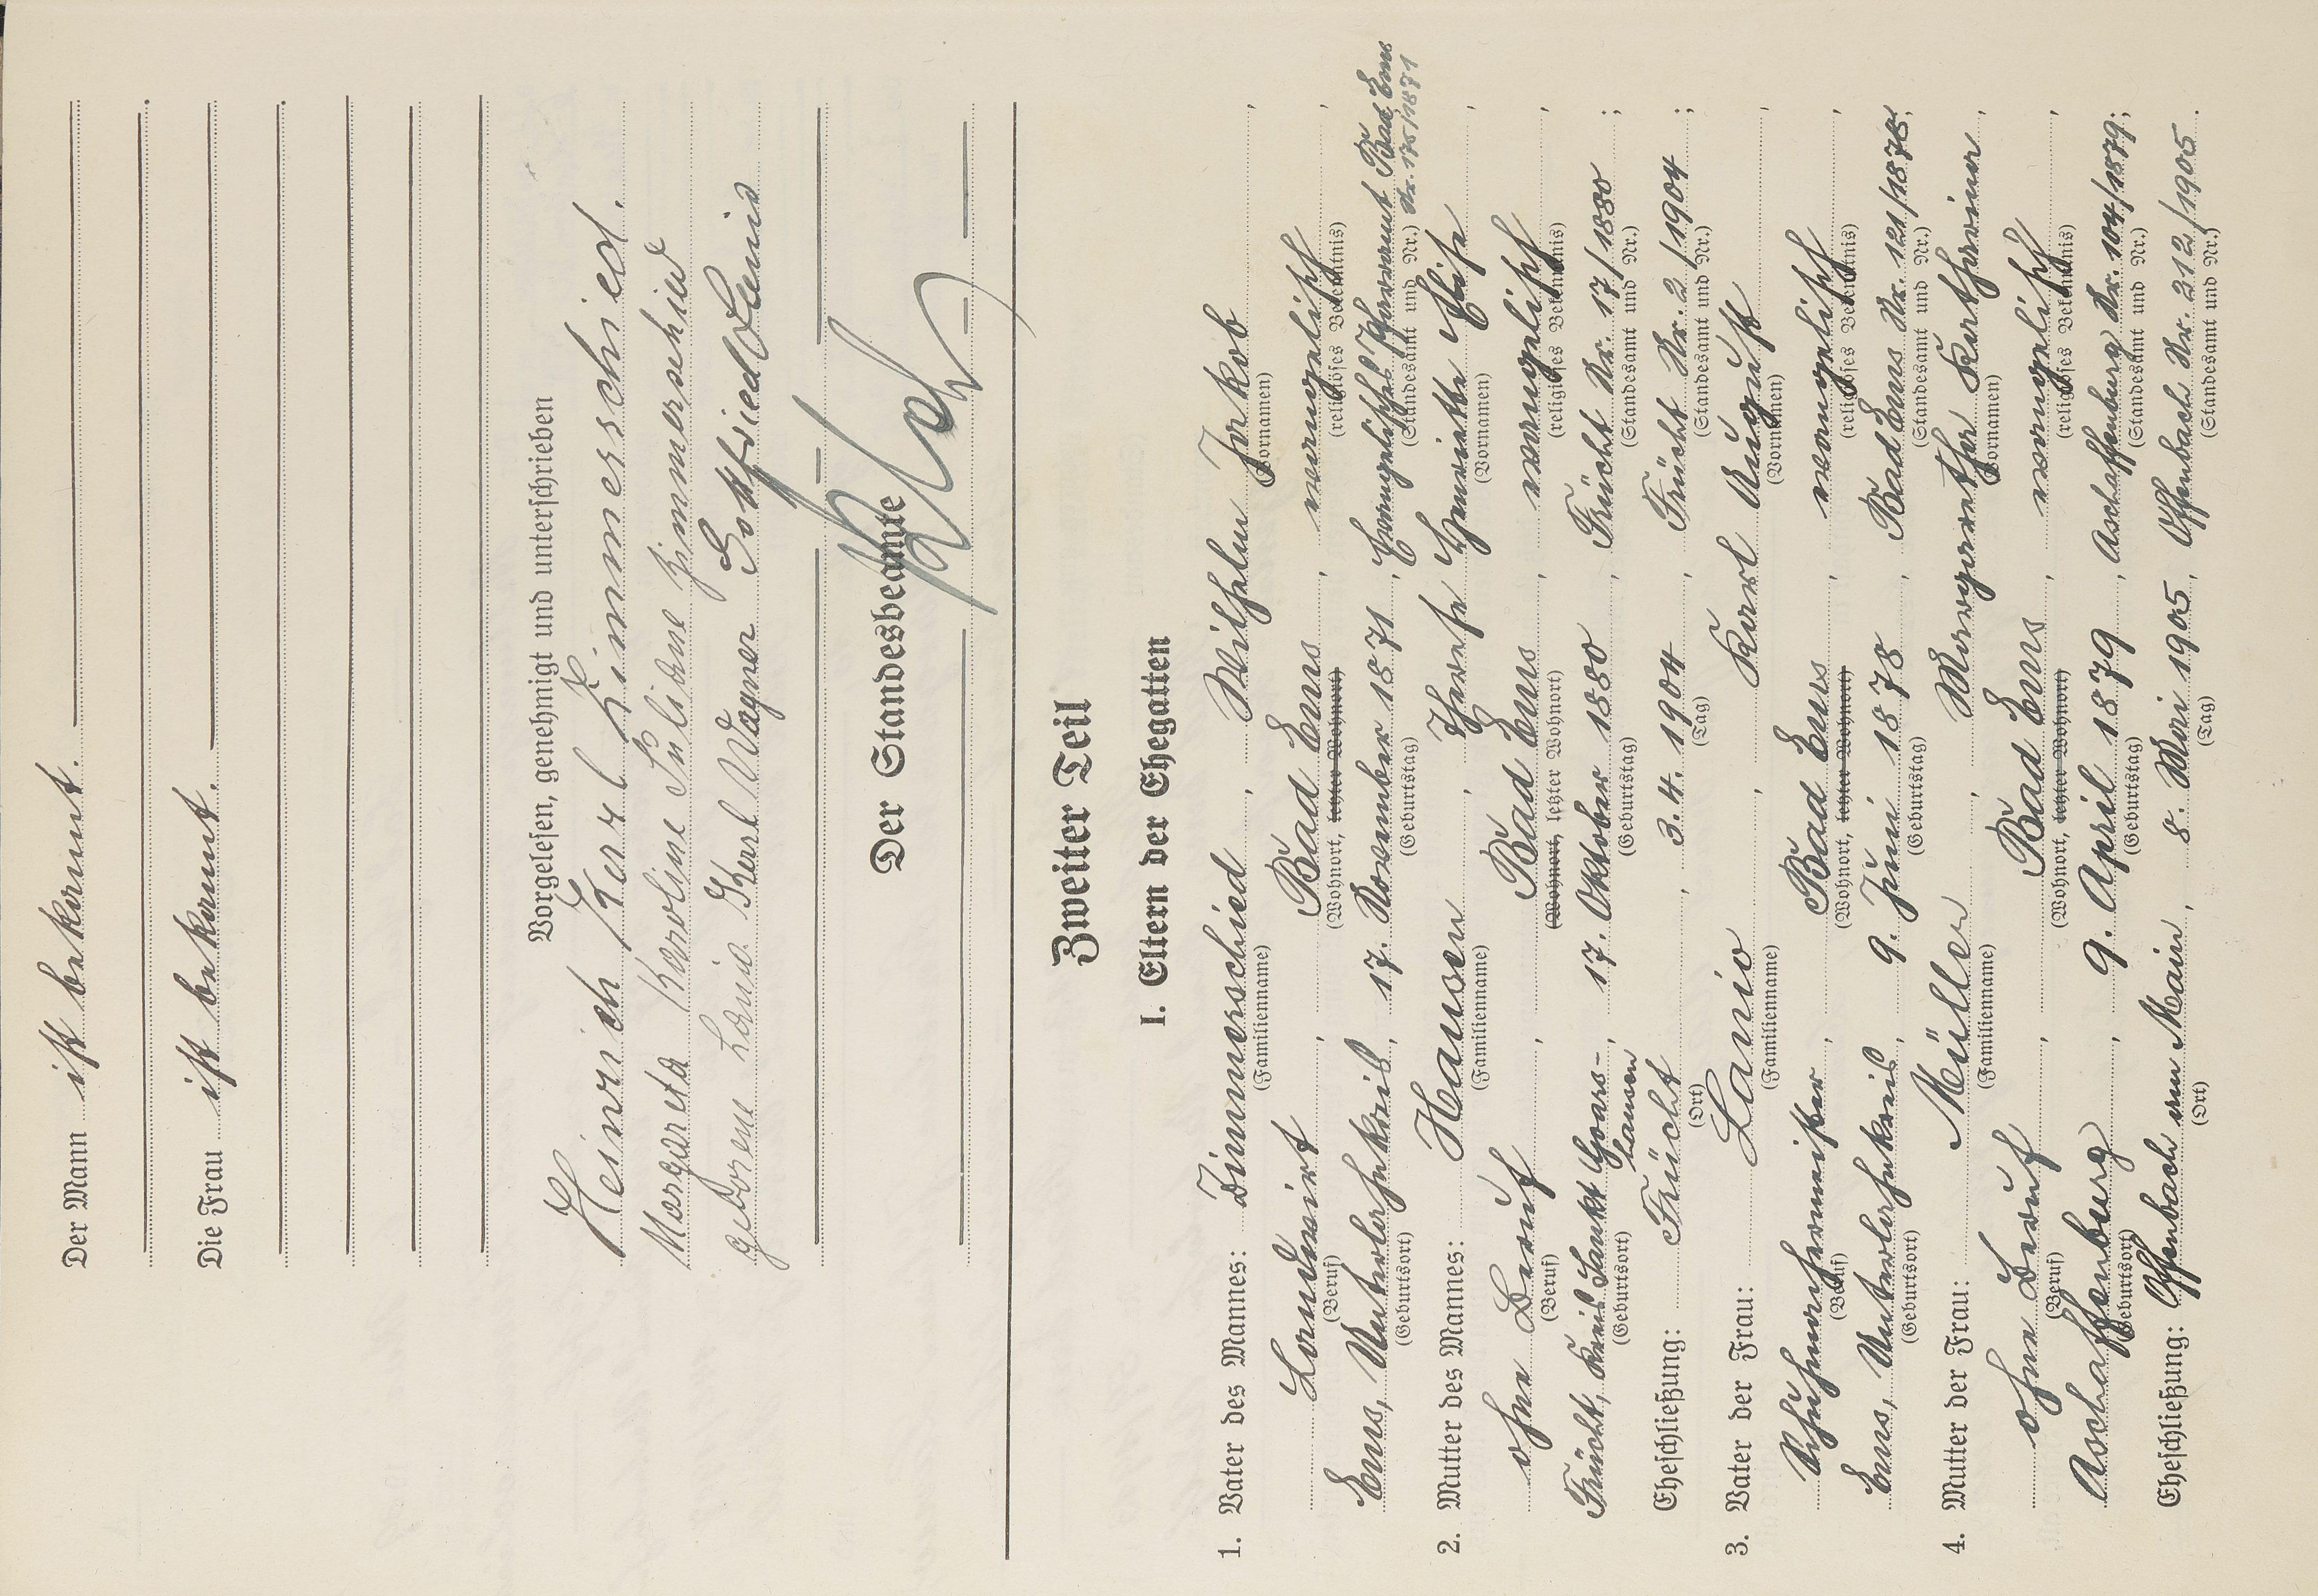 Der Mann ist bekannt.
Die Frau ist bekannt.
Vorgelesen, genehmigt und unterschrieben
Heinrich Karl Zimmerschied.
Margareta Karoline Juliane Zimmerschied
geborene Lanio. Karl Wagner Gottfried Lanio
Der Standesbeamte
Zweiter Teil
I. Eltern der Ehegatten
1. Vater des Mannes: Zimmerschied, Wilhelm Jakob,
(Familienname) (Vornamen)
Landwirt, Bad Ems, evangelisch,
(Beruf) (Wohnort, letzter Wohnort) (religiöses Bekenntnis)
Ems, Unterlahnkreis, 17. November 1871, Evangelisches Pfarramt Bad Ems Nr. 175/1871
(Geburtsort) (Geburtstag) (Standesamt und Nr.)
2. Mutter des Mannes: Hausen, Therese Henriette Elise,
(Familienname) (Vornamen)
ohne Beruf, Bad Ems, evangelisch,
(Beruf) (Wohnort, letzter Wohnort) (religiöses Bekenntnis)
Frücht, Kreis Sankt Goars-hausen, 17. Oktober 1880, Frücht Nr. 17/1880;
(Geburtsort) (Geburtstag) (Standesamt und Nr.)
Eheschließung: Frücht, 3.4. 1904, Frücht Nr. 2/1904;
(Ort) (Tag) (Standesamt und Nr.)
3. Vater der Frau: Lanio, Karl August,
(Familienname) (Vornamen)
Schuhmachermeister, Bad Ems, evangelisch,
(Beruf) (Wohnort, letzter Wohnort) (religiöses Bekenntnis)
Ems, Unterlahnkreis, 9. Juni 1878, Bad Ems Nr. 121/1878;
(Geburtsort) (Geburtstag) (Standesamt und Nr.)
4. Mutter der Frau: Müller, Margaretha Katharina,
(Familienname) (Vornamen)
ohne Beruf, Bad Ems, evangelisch,
(Beruf) (Wohnort, letzter Wohnort) (religiöses Bekenntnis)
Aschaffenburg, 9. April 1879, Aschaffenburg Nr. 104/1879;
(Geburtsort) (Geburtstag) (Standesamt und Nr.)
Eheschließung: Offenbach am Main, 8. Mai 1905, Offenbach Nr. 212/1905.
(Ort) (Tag) (Standesamt und Nr.)